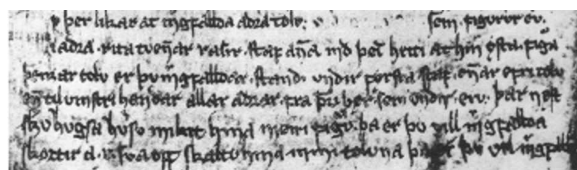 þer likar at mgfallda adra tolv. sem. figurur erv.
i adra. rita tvenar radir. staf ana nid þei hetti at hin efsta. figura
þeirar tolv er þv mgfalldar. standi. vndir fyrsta staf. enar efri tolv
en til vinstri handar allar adrar. fra þvi þer sem vndir. erv. þar nest
skv hvgsa hvso mikit hina meiri figv. þa er þv vill mgfallda
skortir a .x. sva opt skaltv hina mini tolv na þa er þv vill mgfall